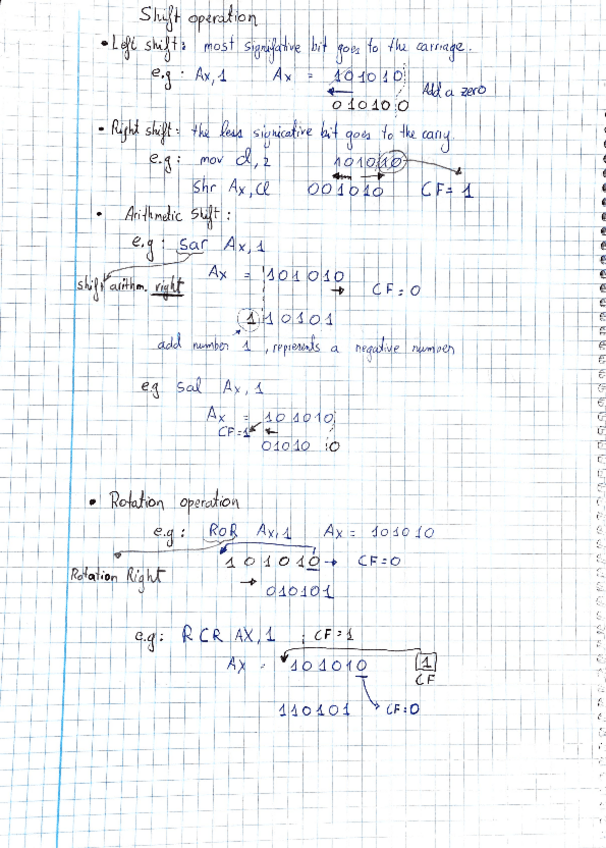 Shift operation
• Left shift: most signifative bit goes to the carriage.
e.g: Ax, 1 Ax = 101010
010100 Add a zero
• Right shift: the less significative bit goes to the carry.
e.g: mov cl, 2 101010
Shr Ax, cl 001010 CF = 1
• Arithmetic Shift:
e.g: sar Ax, 1
shift arithm. right Ax = 101010 CF = 0
110101
add number 1, represents a negative number
e.g sal Ax, 1
Ax = 101010
CF = 1
01010 0
• Rotation operation
e.g: ROR Ax, 1 Ax = 101010
101010 → CF=0
Rotation Right
→ 010101
e.g: RCR AX, 1 ; CF = 1
Ax = 101010 1
CF
110101 CF=0